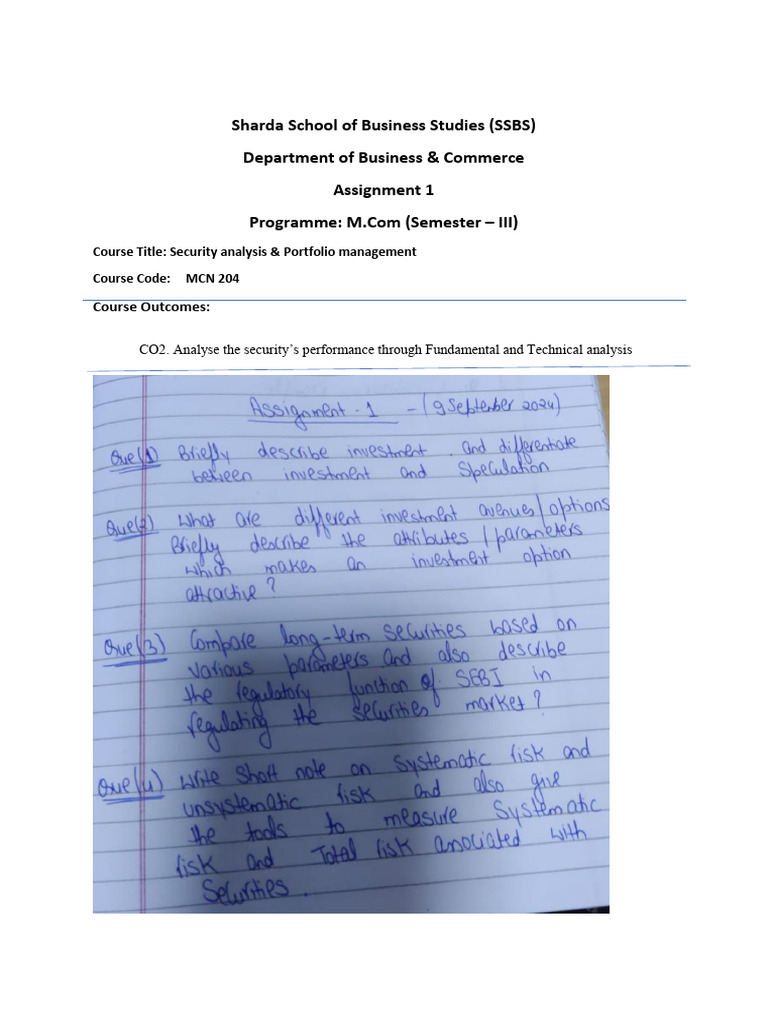 Sharda School of Business Studies (SSBS)
Department of Business & Commerce
Assignment 1
Programme: M.Com (Semester – III)
Course Title: Security analysis & Portfolio management
Course Code: MCN 204
Course Outcomes:
CO2. Analyse the security's performance through Fundamental and Technical analysis
Assignment - 1 - (9 September 2024)
Que(1) Briefly describe investment and differentiate
between investment and Speculation
Que(2) What are different investment avenues/options
Briefly describe the attributes / parameters
which makes an investment option
attractive?
Que(3) Compare long-term securities based on
various parameters and also describe
the regulatory function of SEBI in
regulating the securities market?
Que(4) Write short note on systematic risk and
unsystematic risk and also give
the tools to measure Systematic
risk and Total risk associated with
Securities.